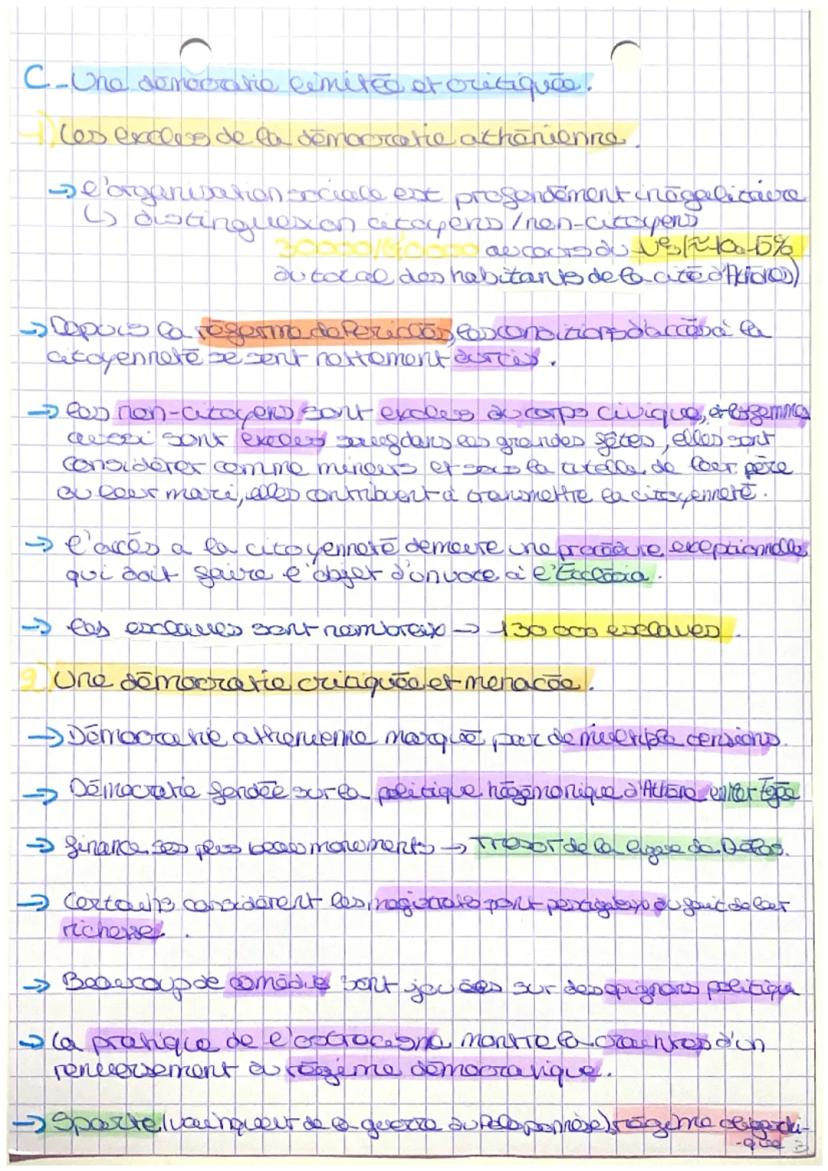 C - Une démocratie limitée et critiquée.
1) Les exclus de la démocratie athénienne.
→ l'organisation sociale est profondément inégalitaire
↳ distinguexion citoyens / non-citoyens
30000/40000 au cours du Ve s (≈ 10 à 15%
du total des habitants de la cité d'Athènes)
→ Depuis la réforme de Périclès, les conditions d'accès à la
citoyenneté se sont nettement durcies.
→ les non-citoyens sont exclus du corps civique, et les femmes
aussi sont exclues sauf dans les grandes fêtes, elles sont
considérer comme mineurs et sous la tutelle de leur père
ou leur mari, elles contribuent à transmettre la citoyenneté.
→ l'accès a la citoyenneté demeure une procédure exeptionnelle
qui doit faire l'objet d'un vote à l'Ecclésia.
→ les esclaves sont nombreux → 130 000 esclaves.
2) Une démocratie critiquée et menacée.
→ Démocratie athenienne marqué par de multiple tensions.
→ Démocratie fondée sur la politique hégémonique d'Athène en Mer Egée
→ finance ses plus beau monuments → Trésor de la ligue de Délos.
→ Certains considèrent les magistrats sont du fait de leur
richesse.
→ Beaucoup de comédie sont jouées sur des opignons politique
→ La pratique de l'ostracisme montre la craintes d'un
renversement du régime démocratique.
→ Sparte (vainqueur de la guerre du Péloponnèse) régime oligarchi-
-que